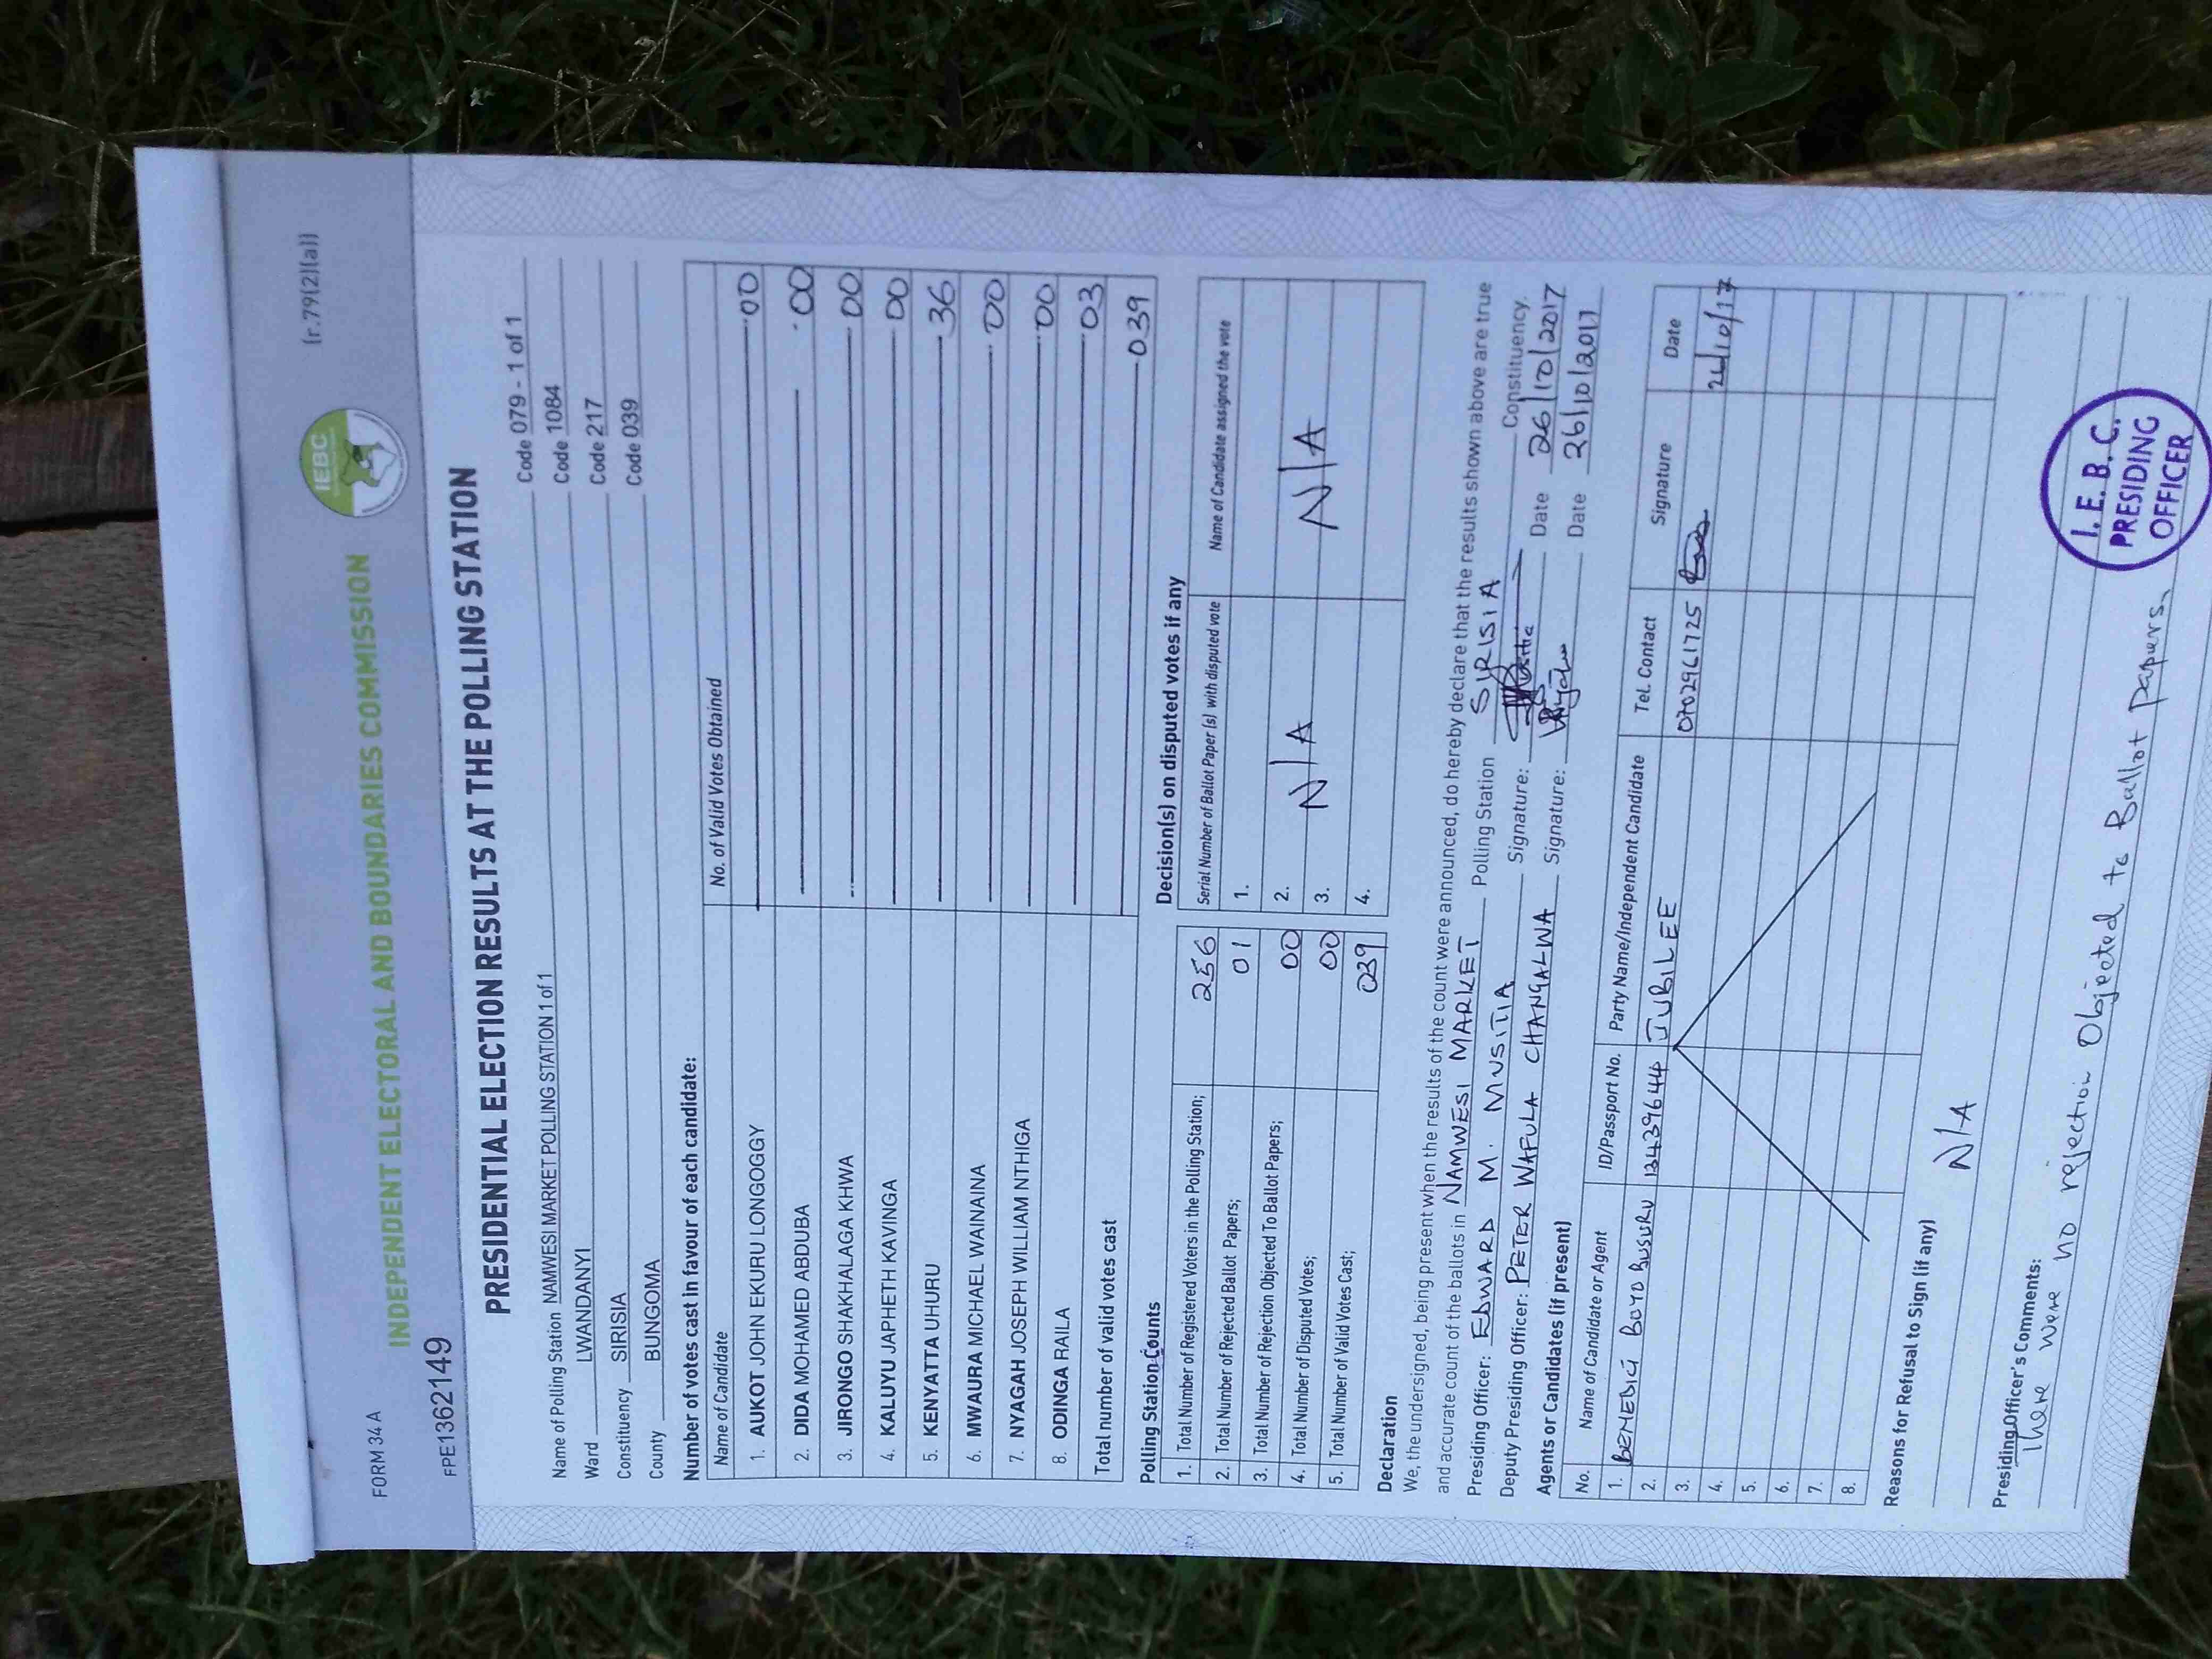 FORM 34 A
(r.79(2)(a))
IEBC
INDEPENDENT ELECTORAL AND BOUNDARIES COMMISSION
FPE1362149
PRESIDENTIAL ELECTION RESULTS AT THE POLLING STATION
Name of Polling Station NAMWESI MARKET POLLING STATION 1 of 1 Code 079 - 1 of 1
Ward LWANDANYI Code 1084
Constituency SIRISIA Code 217
County BUNGOMA Code 039
Number of votes cast in favour of each candidate:
Name of Candidate No. of Valid Votes Obtained
1. AUKOT JOHN EKURU LONGOGGY 00
2. DIDA MOHAMED ABDUBA 00
3. JIRONGO SHAKHALAGA KHWA 00
4. KALUYU JAPHETH KAVINGA 00
5. KENYATTA UHURU 36
6. MWAURA MICHAEL WAINAINA 00
7. NYAGAH JOSEPH WILLIAM NTHIGA 00
8. ODINGA RAILA 03
Total number of valid votes cast 039
Polling Station Counts
1. Total Number of Registered Voters in the Polling Station; 256
2. Total Number of Rejected Ballot Papers; 01
3. Total Number of Rejection Objected To Ballot Papers; 00
4. Total Number of Disputed Votes; 00
5. Total Number of Valid Votes Cast; 039
Decision(s) on disputed votes if any
Serial Number of Ballot Paper (s) with disputed vote Name of Candidate assigned the vote
1.
2.
3. N/A N/A
4.
Declaration
We, the undersigned, being present when the results of the count were announced, do hereby declare that the results shown above are true
and accurate count of the ballots in NAMWESI MARKET Polling Station SIRISIA Constituency.
Presiding Officer: EDWARD M. MUSITIA Signature: Date 26/10/2017
Deputy Presiding Officer: PETER WAFULA CHANGALWA Signature: Date 26/10/2017
Agents or Candidates (if present)
No. Name of Candidate or Agent ID/Passport No. Party Name/Independent Candidate Tel. Contact Signature Date
1. BENEDICT BOYO BUSURU 13439644 JUBILEE 0702961725 26/10/17
2.
3.
4.
5.
6.
7.
8.
Reasons for Refusal to Sign (if any)
N/A
Presiding Officer's Comments:
There were no rejection Objected to Ballot papers.
I.E.B.C.
PRESIDING
OFFICER